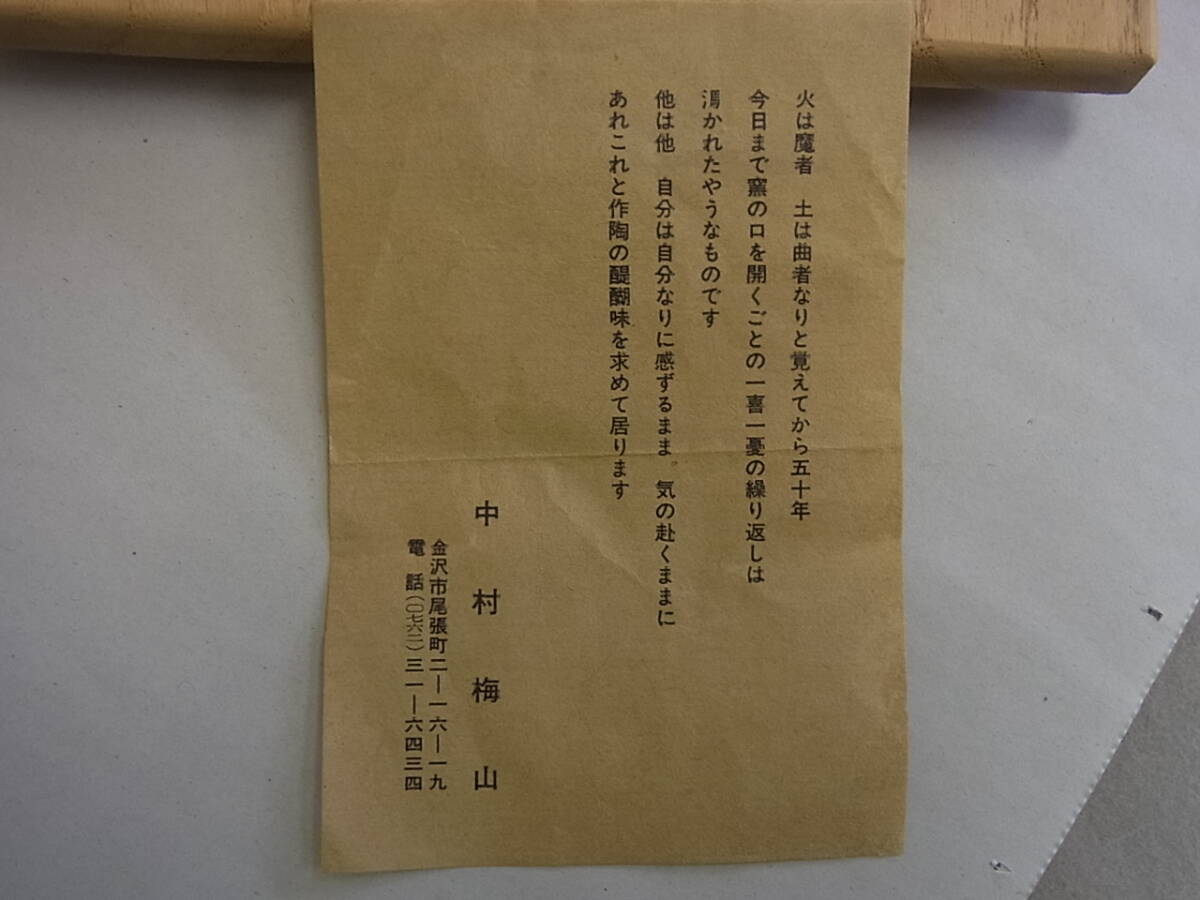 火は魔者　土は曲者なりと覚えてから五十年
今日まで窯の口を開くごとの一喜一憂の繰り返しは
かれたやうなものです
他は他　自分は自分なりに感ずるまま　気の赴くままに
あれこれと作陶の醍醐味を求めて居ります
中村梅山
金沢市尾張町二―一六―一九
電話(〇七六二)三一―六四三四